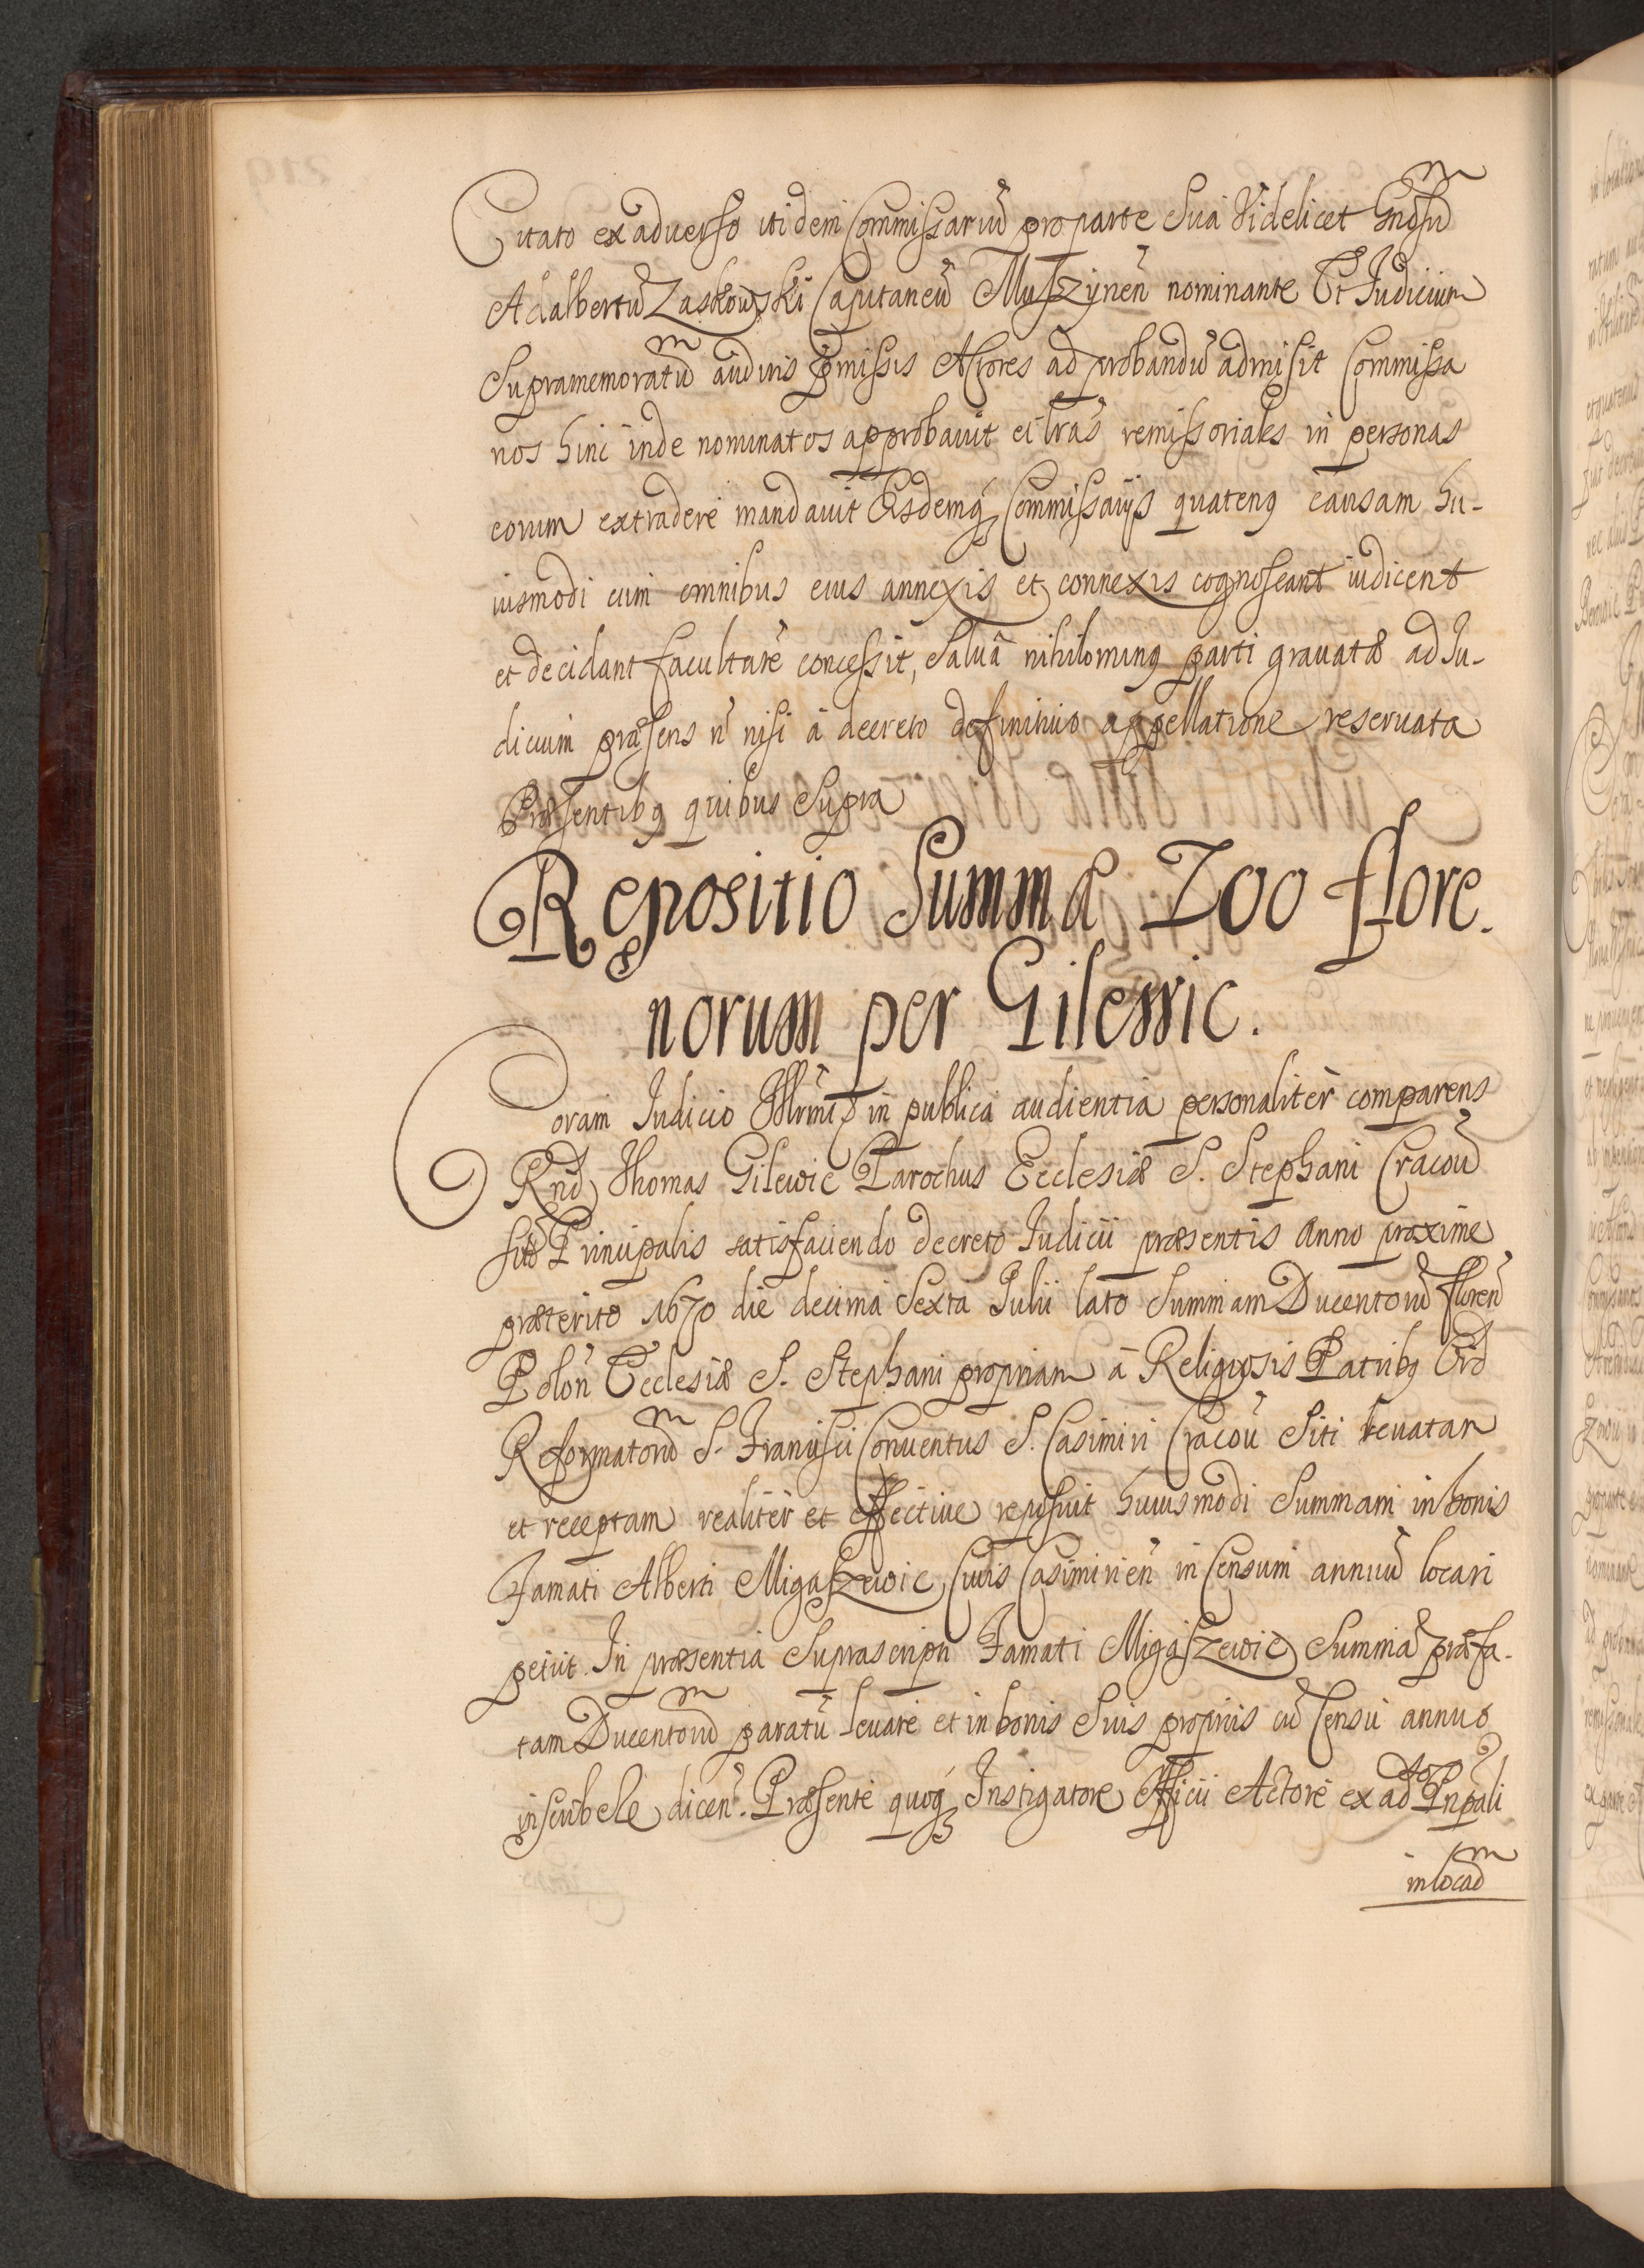 Citato ex aduerso itidem Commissariũ pro parte Sua Videlicet Gnõsũ
Adalbertũ Zaskowski Capitaneũ Muszÿneñ nominante Et Iudicium
Supramemoratũ auditis pmissis Actores ad probandũ admisit Commissa
rios hinc inde nominatos approbauit et lrãs remissoriales in personas
eorum extradere mandauit Eisdemq Commissarijs quatenq causam hu-
iusmodi cum omnibus eius annexis et connexis cognoscant iudicent
et decidant facultatẽ concessit, Saluâ nihilominq parti grauatæ ad Iu-
dicium præsens ñ nisi â decreto definitiuo appellatione reseruata
Præsentibq quibus Supra
Repositio Summæ 200 flore.
norum per Gilewic.
Coram Iudicio Illrmi in publica audientia personaliter comparens
Rnd Thomas Gilewic Parochus Ecclesiæ S. Stephani Cracoũ
Principalis satisfaciendo decreto Iudicii præsentis Anno proxime
præterito 1670 die decima Sexta Iulii lato Summam Ducentorũ floreñ
Poloñ Ecclesiæ S. Stephani propriam â Religiosis Patribq Ord
Reformatorũ S. Francisci Conuentus S. Casimiri Cracoũ Siti leuatam
et receptam realiter et effectiue reposuit huiusmodi Summam in bonis
Famati Alberti Migaszewic Ciuis Casimirieñ in Censum annuũ locari
petiit. In præsentia Suprascripti Famati Migaszewic Summã præfa-
tam Ducentorũ paratũ leuare et in bonis Suis propriis cũ Censu annuo
dicen. Præsente quoq Instigatore Officii Actore ex adũso Pnpali
in locad